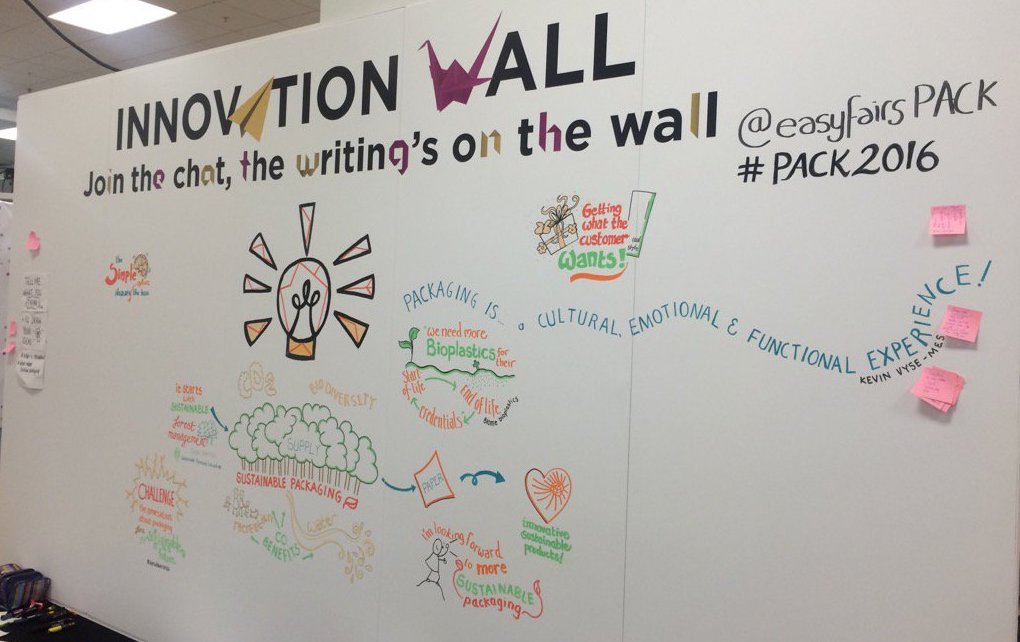 INNOVATION WALL
Join the chat, the writing's on the wall
@easyfairsPACK
# PACK2016
the
Simple
Getting
what the
customer
Wants!
PACKAGING IS... a CULTURAL, EMOTIONAL & FUNCTIONAL EXPERIENCE!
KEVIN VYSE - M&S
"we need more
Bioplastics for
their
Start
of life
End of life
credentials"
TELL ME
WHAT YOU
THINK
CO2
BIODIVERSITY
it starts
with
SUSTAINABLE
forest
management
SUPPLY
SUSTAINABLE PACKAGING
PAPER
innovative
sustainable
products!
CHALLENGE
the conventions
about packaging
recreation
CO
BENEFITS
water
i'm looking forward
to more
SUSTAINABLE
packaging